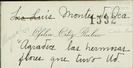 Luis Montes de Oca
1332
Ofelia Ortiz Rubio
"Agradece las hermosas
flores que tuvo Ud